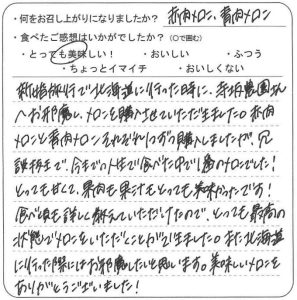 ・何をお召し上がりになりましたか？ 赤肉メロン、青肉メロン
・食べたご感想はいかがでしたか？（○で囲む）
・とっても美味しい！ ・おいしい ・ふつう
・ちょっとイマイチ ・おいしくない
新婚旅行で北海道に行った時に、寺坂農園さん
へお邪魔し、メロンを購入させていただきました。赤肉
メロンと青肉メロンそれぞれ1つずつ購入しましたが、冗
談抜きで、今までの人生で食べた中で1番のメロンでした！
とっても甘くて、果肉も果汁もとっても美味かったです！
食べ頃も詳しく教えていただけたので、とっても最高の
状態でメロンをいただくことができました。また北海道
に行った際にはお邪魔したいと思います。美味しいメロンを
ありがとうございました！